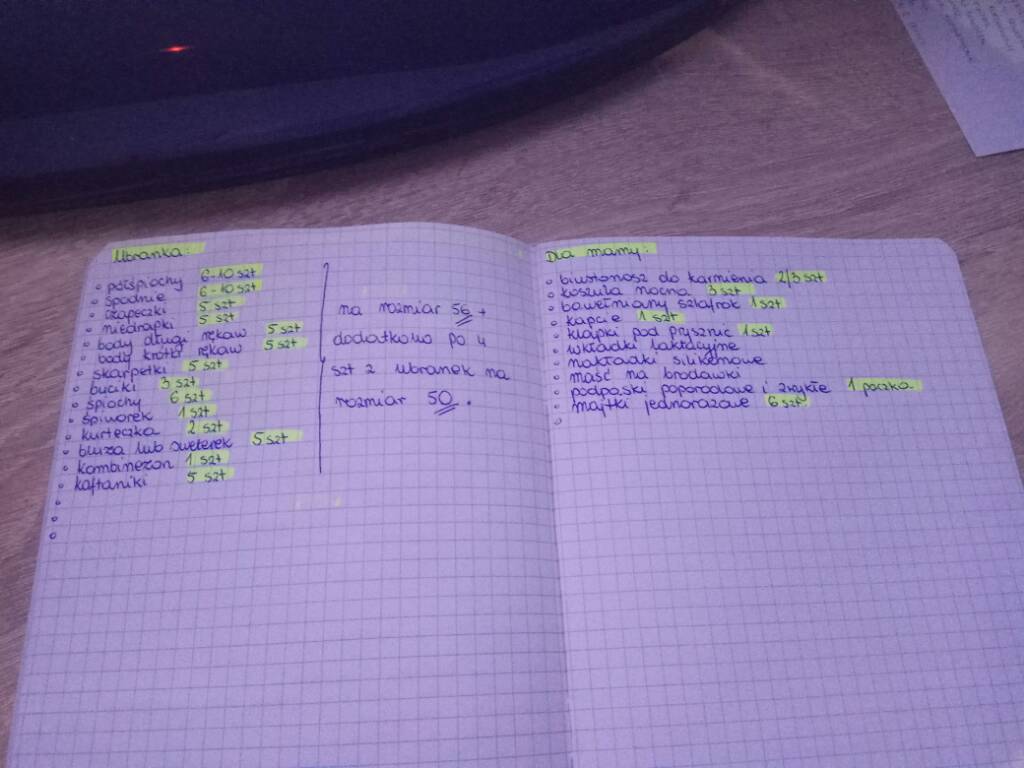 Ubranka:
◦ półśpiochy 6-10 szt
◦ spodnie 6-10 szt
◦ czapeczki 5 szt
◦ niedrapki 5 szt
◦ body długi rękaw 5 szt
◦ body krótki rękaw 5 szt
◦ skarpetki 5 szt
◦ buciki 3 szt
◦ śpiochy 6 szt
◦ śpiworek 1 szt
◦ kurteczka 2 szt
◦ bluza lub sweterek 5 szt
◦ kombinezon 1 szt
◦ kaftaniki 5 szt
na rozmiar 56 +
dodatkowo po 4
szt z ubranek na
rozmiar 50.
Dla mamy:
◦ biustonosz do karmienia 2/3 szt
◦ koszula nocna 3 szt
◦ bawełniany szlafrok 1 szt
◦ kapcie 1 szt
◦ klapki pod prysznic 1 szt
◦ wkładki laktacyjne
◦ nakładki silikonowe
◦ maść na brodawki
◦ podpaski poporodowe i zwykłe 1 paczka
◦ majtki jednorazowe 6 szt.